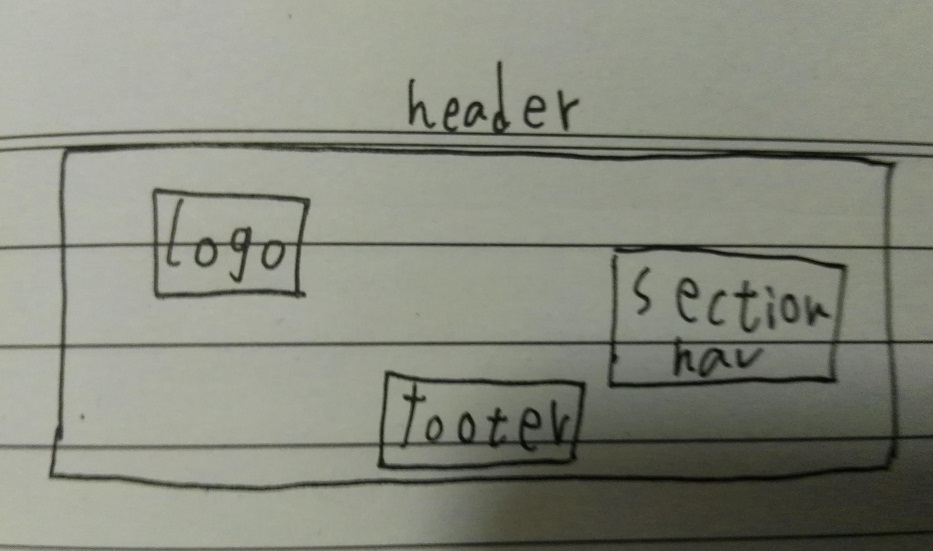 header
logo
section
nav
footer